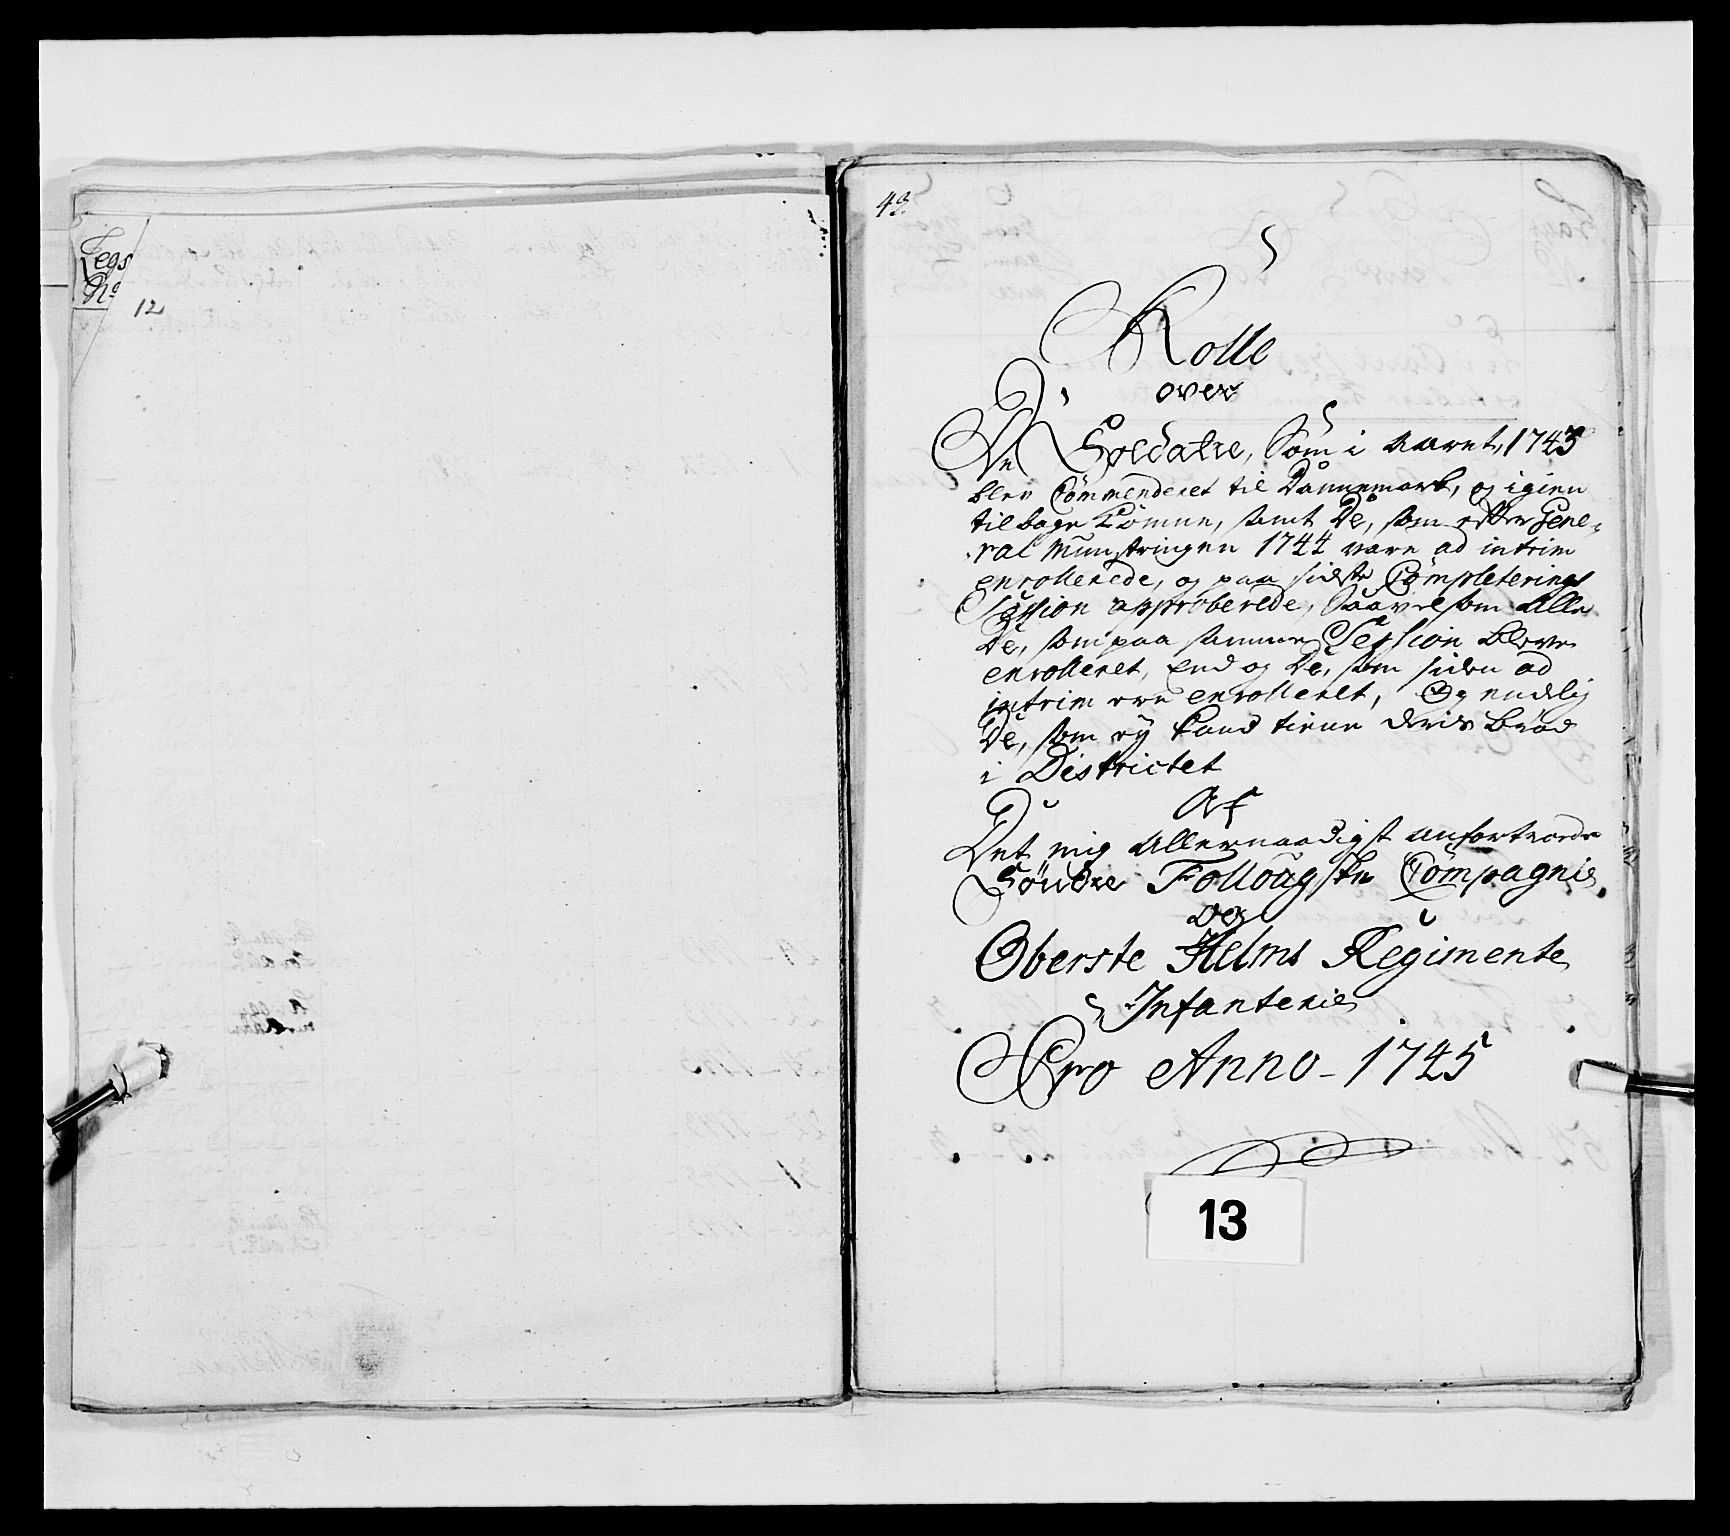 Legs
No
12
49.
Rolle
over
De Soldater, Som i Aaret, 1743
blev Commenderet til Dannemark, og igien
tilbage komne, samt De, som efter Gene-
ral Munstringen 1744 vare ad intrim
enrollerede, og paa sidste Completerings
Session approberede, Saavelsom Alle
De, som paa samme Session bleve
enrolleret, End og De, som siden ad
intrim ere enrolleret, Og endelig
De, som ey kand tiene deris brød
i Districtet
Af
Det mig Allernaadigst anfortroede
Søndre Follougske Compagnie
og
Oberste Helms Regimente
Infanterie
Pro Anno - 1745
13